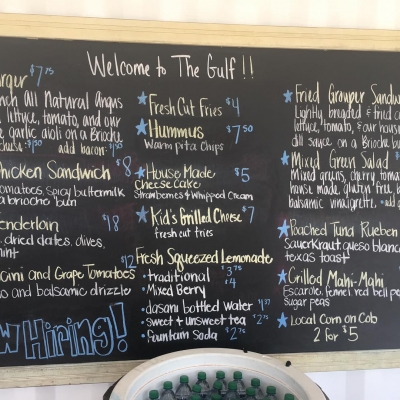 Welcome to The Gulf !!
urger $7.75
nch All Natural Angus
lettuce, tomato, and our
e garlic aioli on a Brioche
add bacon:
Chicken Sandwich $8
omatoes, spicy buttermilk
a brioche bun
enderloin $18
dried dates, olives,
mint
cini and Grape Tomatoes $12
o and balsamic drizzle
w Hiring!
Fresh Cut Fries $4
Hummus $7.50
Warm pita Chips
House Made $5
Cheese Cake
Strawberries & Whipped Cream
Kid's Grilled Cheese $7
fresh cut fries
Fresh Squeezed Lemonade
• traditional $3.75
• Mixed Berry $4
• dasani bottled water
• sweet & unsweet tea $2.75
• fountain soda $2.75
Fried Grouper Sandw
Lightly breaded & fried c
lettuce, tomato, & our hous
dill sauce on a Brioche bu
Mixed Green Salad
Mixed greens, cherry toma
house made, gluten free, b
balsamic vinaigrette. • add g
Poached Tuna Rueben
Sauerkraut, queso blanco
texas toast
Grilled Mahi-Mahi
Escarole, fennel, red bell pe
Sugar peas
Local Corn on Cob
2 for $5